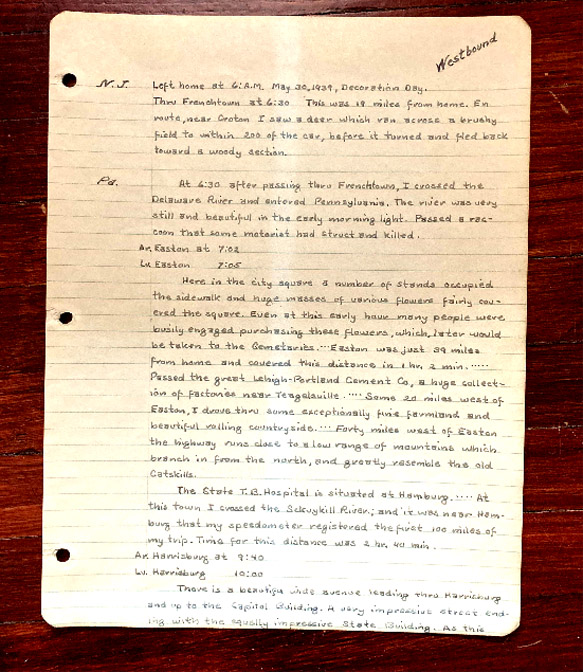 Westbound
N.J. Left home at 6:A.M. May 30, 1939, Decoration Day.
Thru Frenchtown at 6:30 This was 19 miles from home. En
route, near Croton I saw a deer which ran across a brushy
field to within 200 of the car, before it turned and fled back
toward a woody section.
Pa. At 6:30 after passing thru Frenchtown, I crossed the
Delaware River and entered Pennsylvania. The river was very
still and beautiful in the early morning light. Passed a rac-
coon that some motorist had struck and killed.
Ar. Easton at 7:02
Lv. Easton 7:05
Here in the city square a number of stands occupied
the sidewalk and huge masses of various flowers fairly cov-
ered the square. Even at this early hour many people were
busily engaged purchasing these flowers, which, later would
be taken to the Cemetaries. ... Easton was just 39 miles
from home and covered this distance in 1 hr. 2 min. .....
Passed the great Lehigh-Portland Cement Co, a huge collect-
ion of factories near .... Some 20 miles west of
Easton, I drove thru some exceptionally fine farmland and
beautiful rolling countryside. ... Forty miles west of Easton
the highway runs close to a low range of mountains which
branch in from the north, and greatly resemble the old
Catskills.
The State T.B. Hospital is situated at Hamburg. .... At
this town I crossed the River; and it was near Ham-
burg that my speedometer registered the first 100 miles of
my trip. Time for this distance was 2 hr. 40 min.
Ar. Harrisburg at 9:40
Lv. Harrisburg 10:00
There is a beautiful wide avenue leading thru Harrisburg
and up to the Capitol Building. A very impressive street end-
ing with the equally impressive State Building. As this